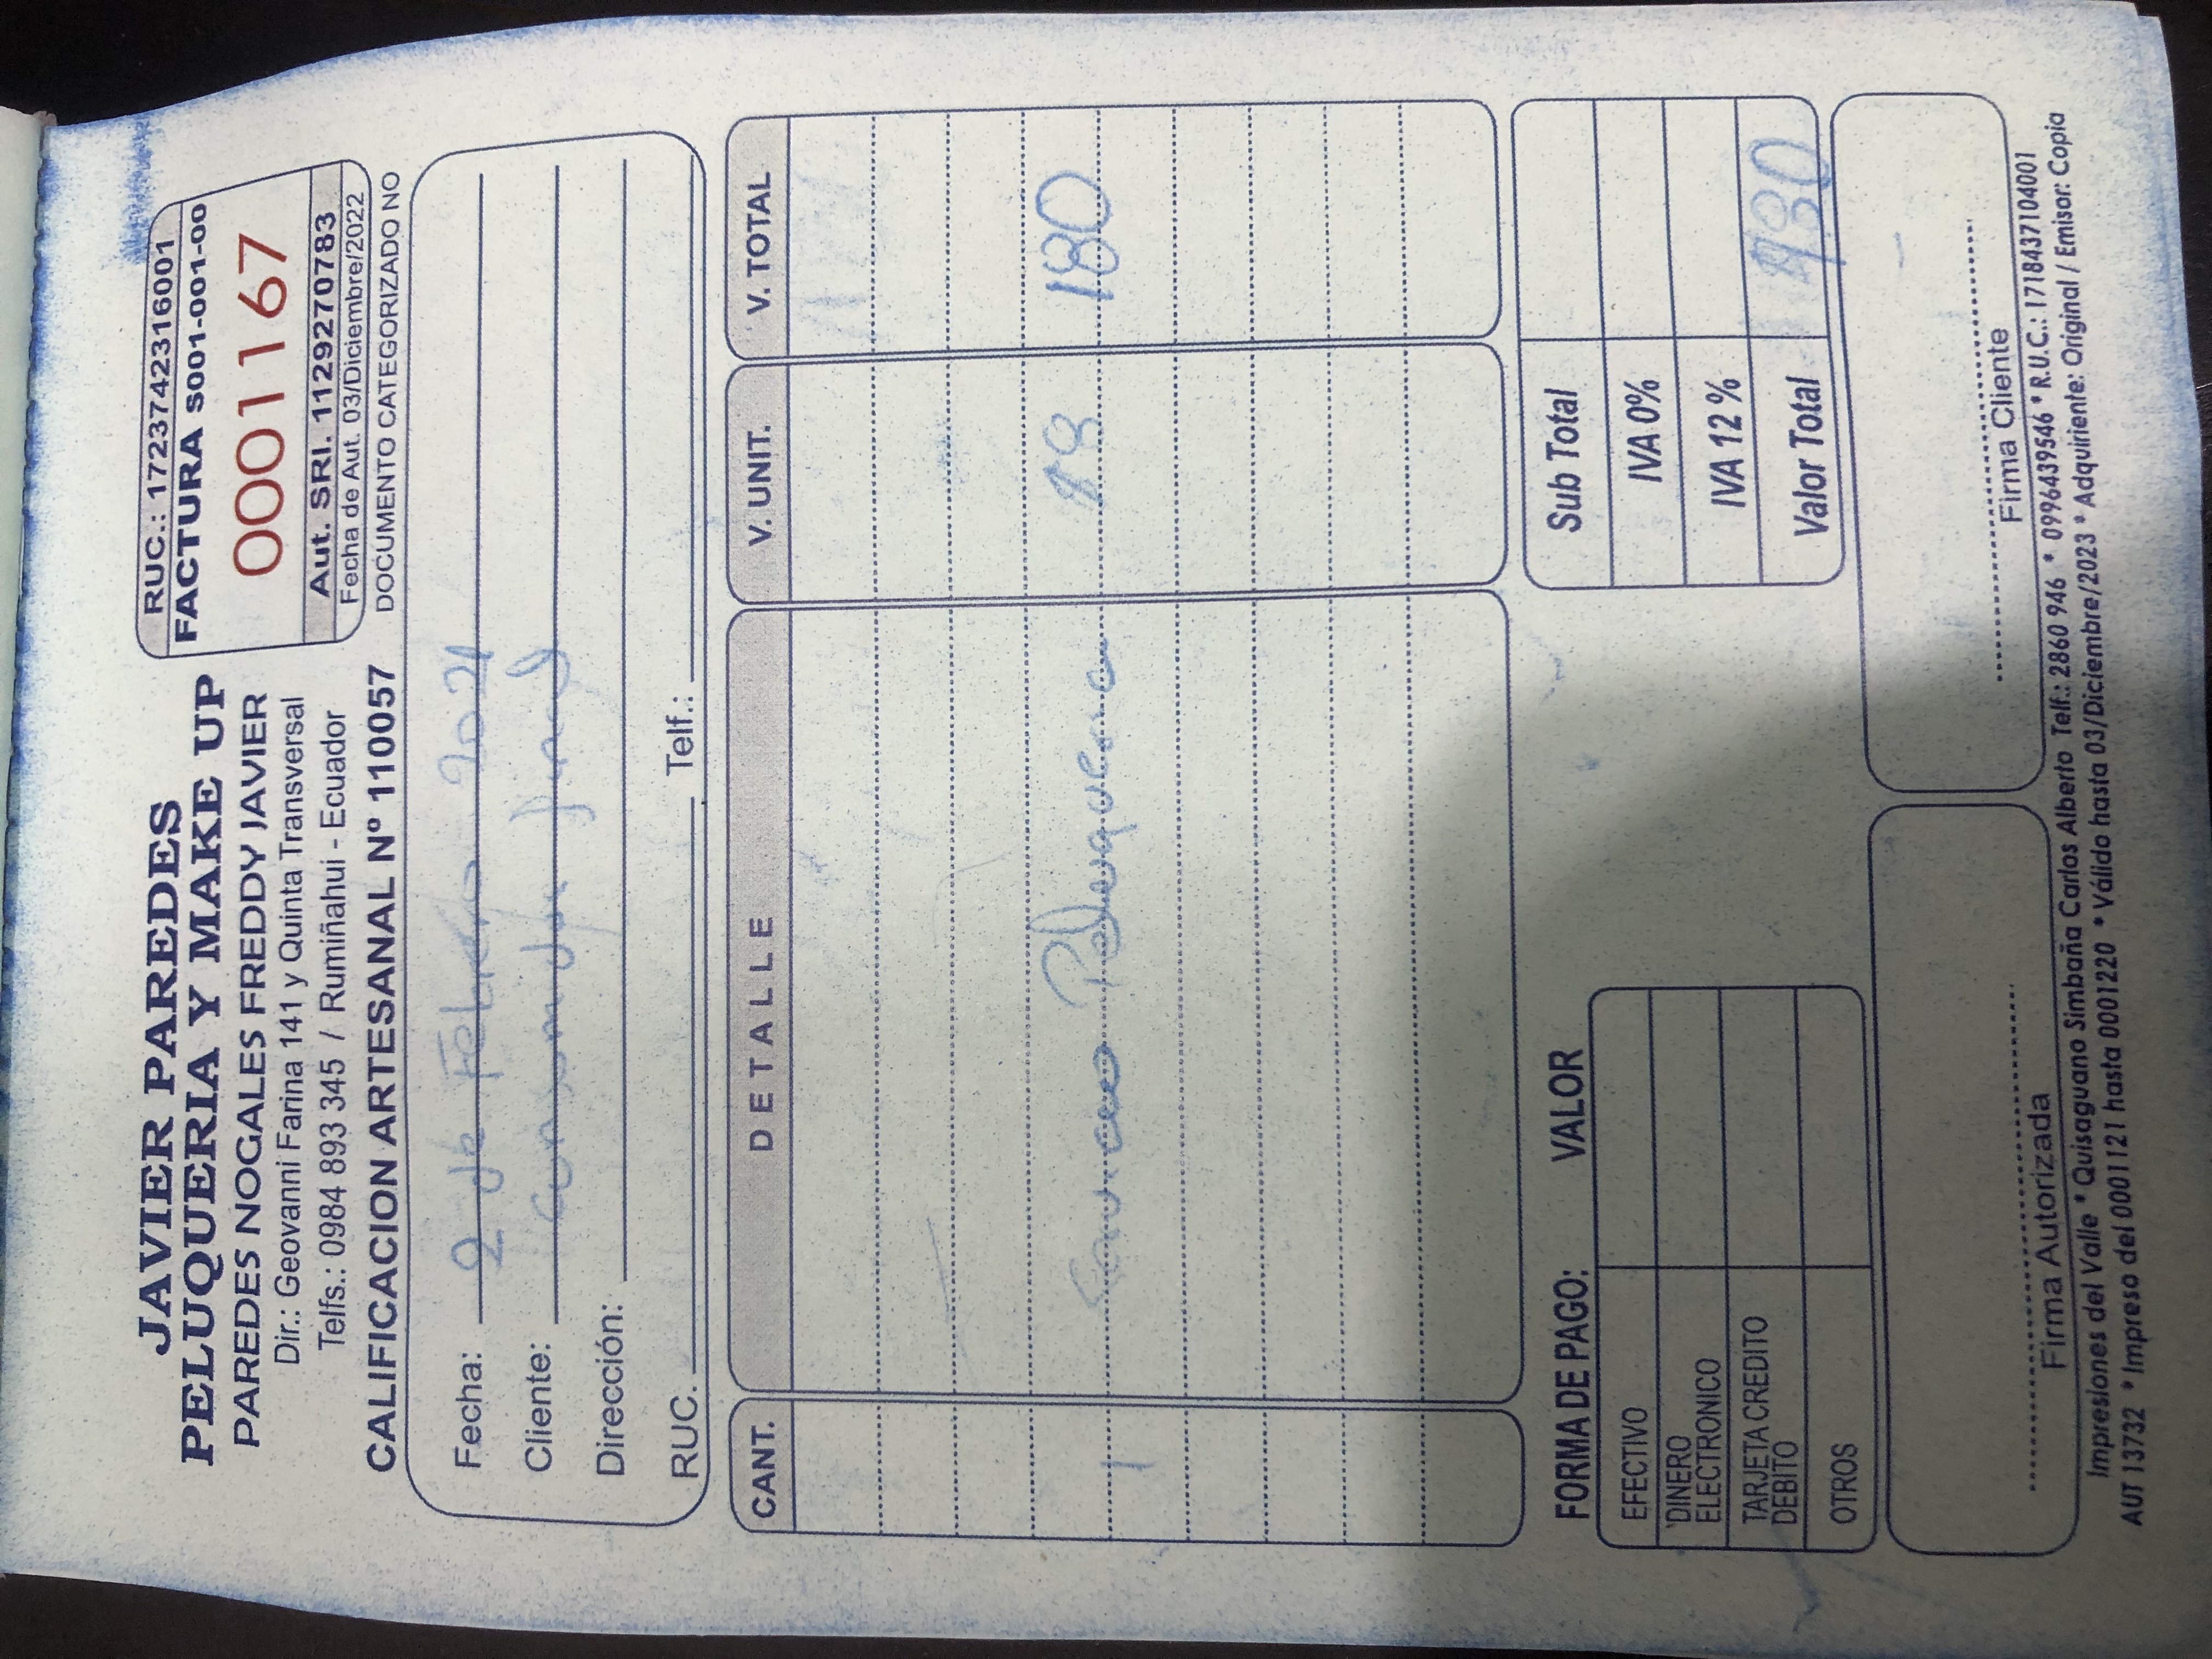 JAVIER PAREDES
PELUQUERIA Y MAKE UP
PAREDES NOGALES FREDDY JAVIER
Dir.: Geovanni Farina 141 y Quinta Transversal
Telfs.: 0984 893 345 / Rumiñahui - Ecuador
CALIFICACION ARTESANAL Nº 110057
RUC.: 1723742316001
FACTURA S001-001-00
0001167
Aut. SRI. 1129270783
Fecha de Aut. 03/Diciembre/2022
DOCUMENTO CATEGORIZADO NO
Fecha: 2 de Febrero
Cliente: consumidor final
Dirección:
RUC. Telf.:
CANT. DETALLE V. UNIT. V. TOTAL
1 Servicio Peluqueria 180
FORMA DE PAGO: VALOR
EFECTIVO
DINERO
ELECTRONICO
TARJETA CREDITO
DEBITO
OTROS
Sub Total
IVA 0%
IVA 12 %
Valor Total
Firma Autorizada
Firma Cliente
Impresiones del Valle * Quisaguano Simbaña Carlos Alberto Telf.: 2860 946 * 0996439546 * R.U.C.: 1718437104001
AUT 13732 * Impreso del 0001121 hasta 0001220 * Válido hasta 03/Diciembre/2023 * Adquiriente: Original / Emisor: Copia